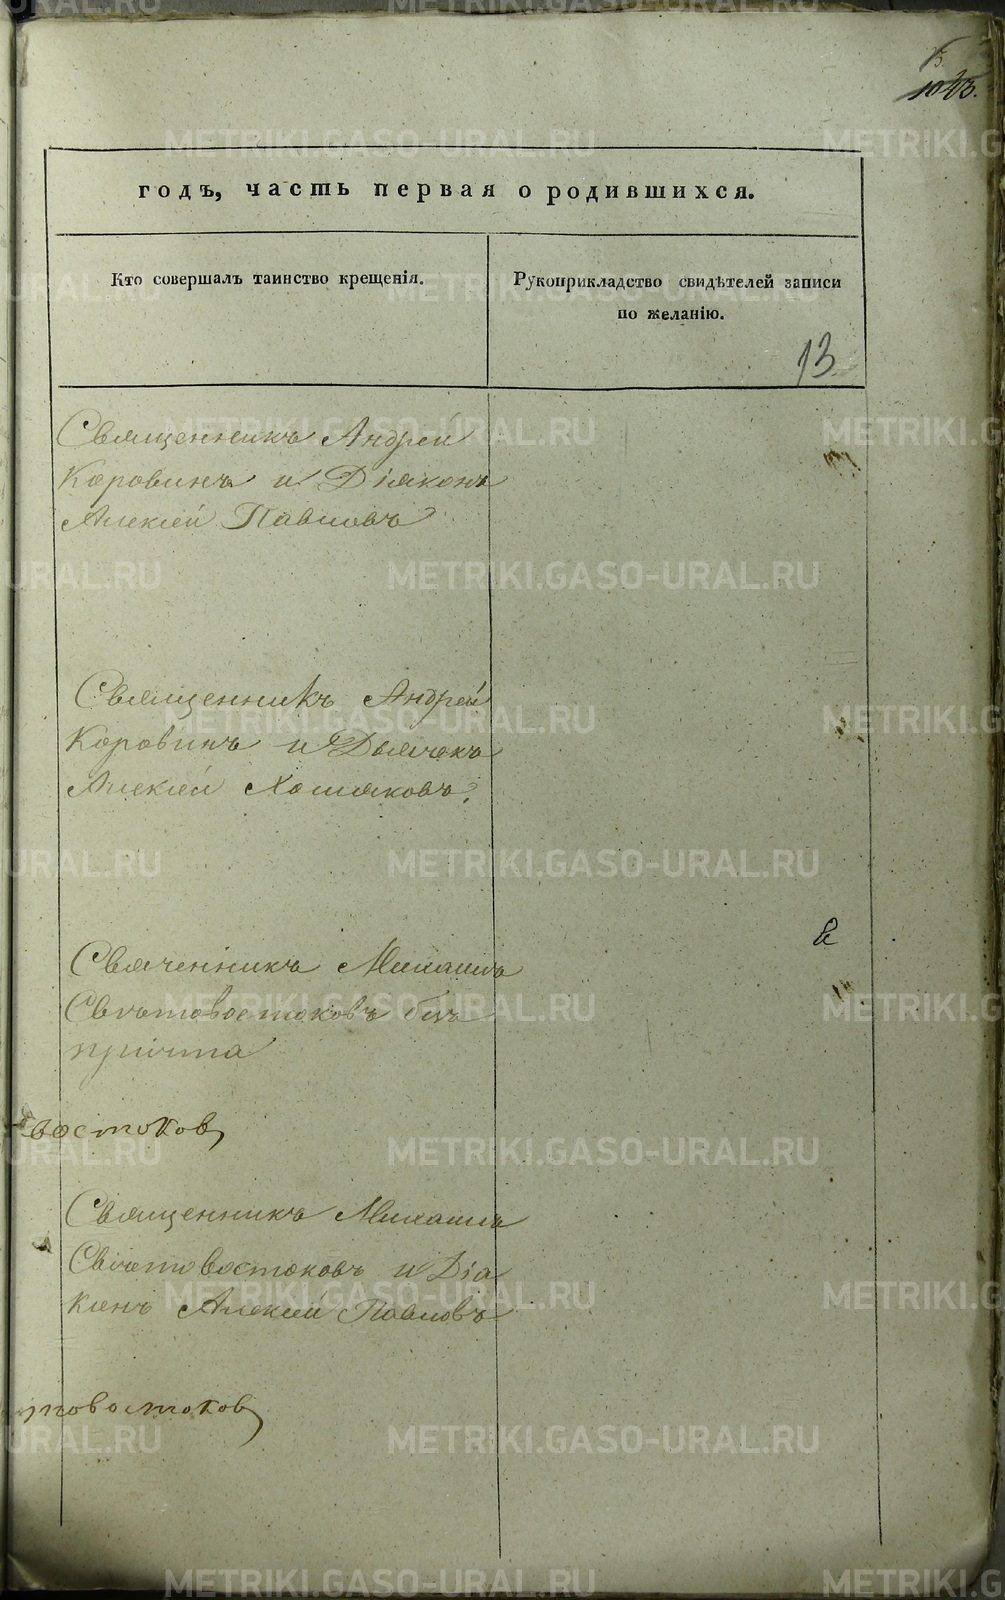 13.
годъ, часть первая о родившихся.
Кто совершалъ таинство крещенія.
Рукоприкладство свидѣтелей записи
по желанію.
13
Священникъ Андрей
Коровинъ и Діяконъ
Алексей Павловъ
Священникъ Андрей
Коровинъ и Дьячекъ
Алексей Хомяковъ.
Свяченникъ Михаилъ
Световостоковъ безъ
причта
востоков
Священникъ Михаилъ
Световостоковъ и Діа
конъ Алексей Павловъ
товостоков
METRIKI.GASO-URAL.RU